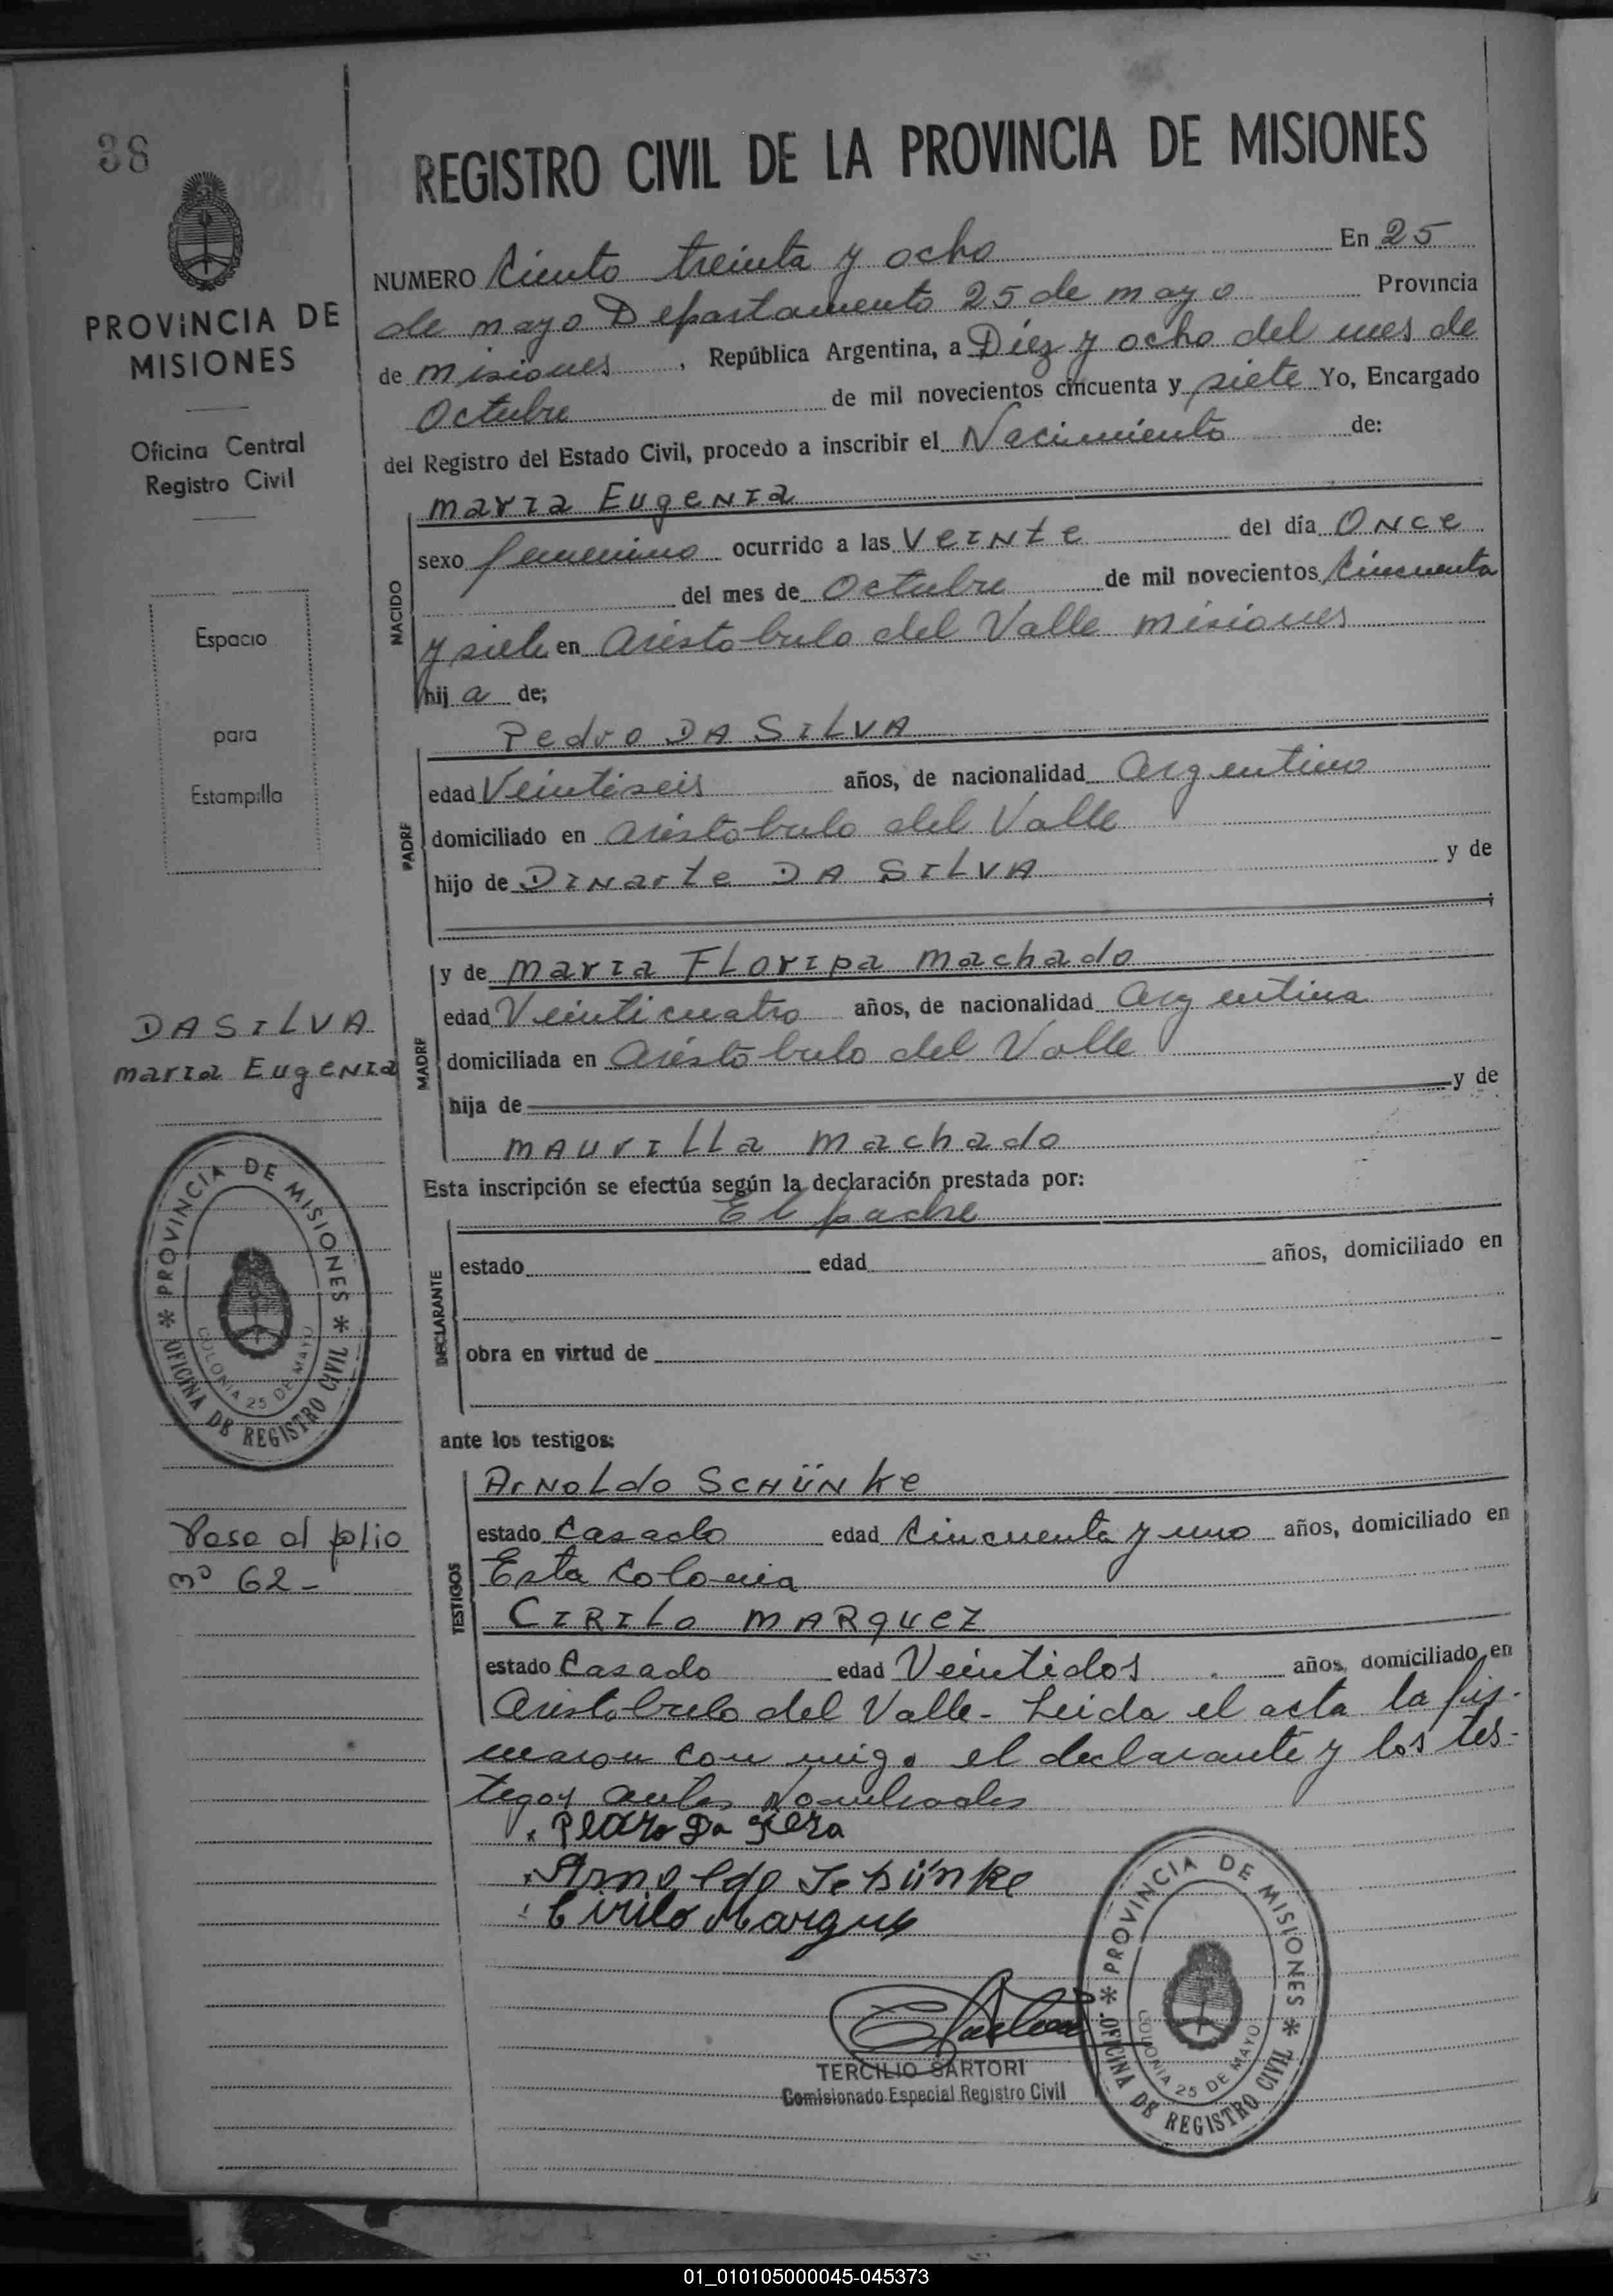 38
PROVINCIA DE
MISIONES
Oficina Central
Registro Civil
Espacio
para
Estampilla
DA SILVA
maria Eugenia
PROVINCIA DE MISIONES
OFICINA DE REGISTRO CIVIL
COLONIA 25 DE MAYO
Pasa al folio
nº 62-
REGISTRO CIVIL DE LA PROVINCIA DE MISIONES
NUMERO Ciento treinta y ocho En 25
de mayo Departamento 25 de mayo Provincia
de misiones, República Argentina, a Diez y ocho del mes de
Octubre de mil novecientos cincuenta y siete Yo, Encargado
del Registro del Estado Civil, procedo a inscribir el Nacimiento de:
NACIDO
maria Eugenia
sexo femenino ocurrido a las Veinte del día Once
del mes de Octubre de mil novecientos Cincuenta
y siete en Aristobulo del Valle misiones
hij a de;
PADRE
Pedro DA SILVA
edad Veintiseis años, de nacionalidad Argentino
domiciliado en Aristobulo del Valle
hijo de Dinarte DA SILVA y de
MADRE
y de maria Floripa machado
edad Veinticuatro años, de nacionalidad Argentina
domiciliada en Aristobulo del Valle
hija de y de
maurilla machado
Esta inscripción se efectúa según la declaración prestada por:
El padre
DECLARANTE
estado edad años, domiciliado en
obra en virtud de
ante los testigos:
TESTIGOS
Arnoldo Schünke
estado Casado edad Cincuenta y uno años, domiciliado en
Esta Colonia
CIRILO MARQUEZ
estado Casado edad Veintidos años, domiciliado en
Aristobulo del Valle- Leida el acta la fir-
maron con migo el declarante y los tes-
tigos antes Nombrados
Pedro Da
Arnoldo Schünke
Cirilo Marquez
TERCILIO SARTORI
Comisionado Especial Registro Civil
PROVINCIA DE MISIONES
OFICINA DE REGISTRO CIVIL
COLONIA 25 DE MAYO
01_010105000045-045373